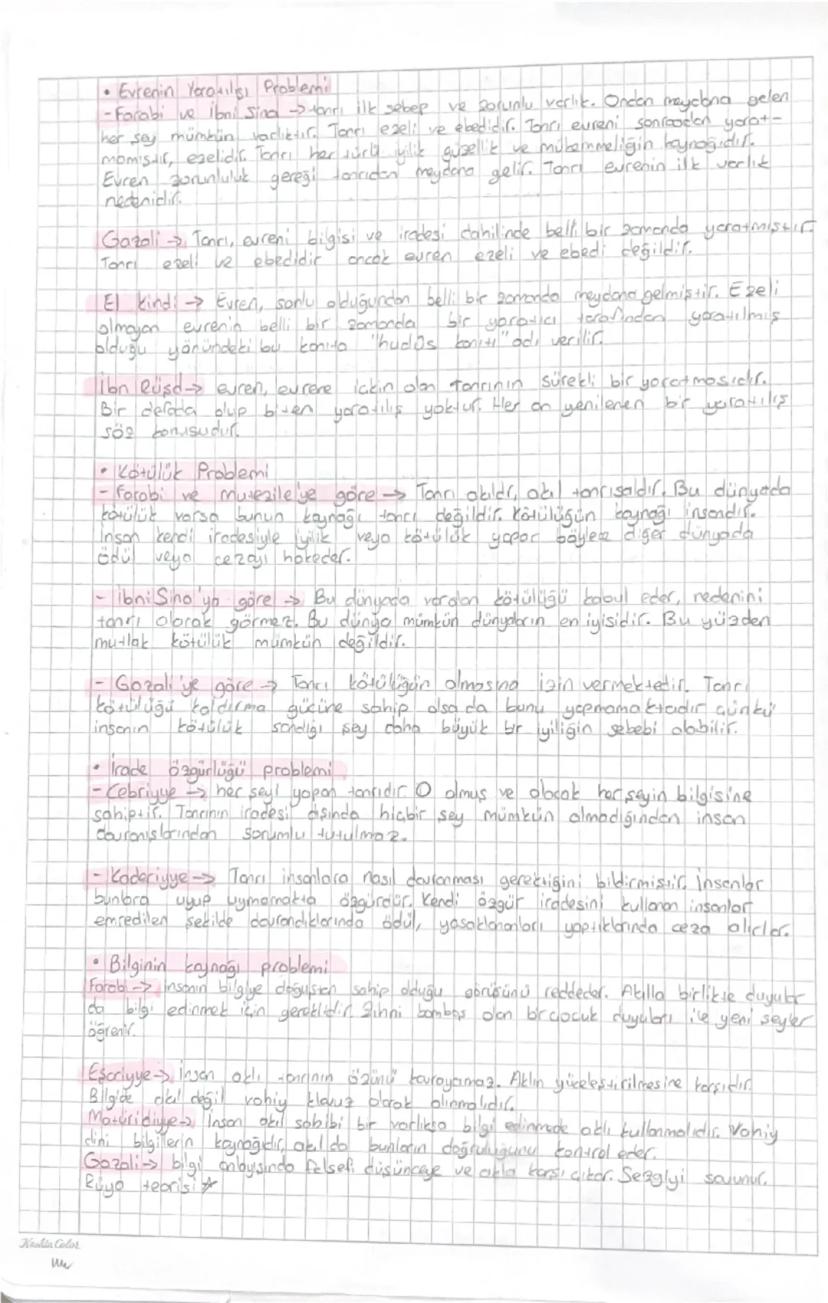 • Evrenin Yaratılışı Problemi
- Farabi ve İbni Sina → tanrı ilk sebep ve zorunlu varlık. Ondan meydana gelen
her şey mümkün varlıktır. Tanrı ezeli ve ebedidir. Tanrı evreni sonradan yarat-
mamıştır, ezelidir. Tanrı her türlü iyilik güzellik ve mükemmeliğin kaynağıdır.
Evren zorunluluk gereği tanrıdan meydana gelir. Tanrı evrenin ilk varlık
nedenidir.
Gazali → Tanrı, evreni bilgisi ve iradesi dahilinde belli bir zamanda yaratmıştır.
Tanrı ezeli ve ebedidir ancak evren ezeli ve ebedi değildir.
El kindi → Evren, sonlu olduğundan belli bir zamanda meydana gelmiştir. Ezeli
olmayan evrenin belli bir zamanda bir yaratıcı tarafından yaratılmış
olduğu yönündeki bu kanıta "hudüs kanıtı" adı verilir.
İbn Rüşd → evren, evrene içkin olan tanrının sürekli bir yaratmasıdır.
Bir defada olup biten yaratılış yoktur. Her an yenilenen bir yaratılış
söz konusudur.
• Kötülük Problemi
- Farabi ve mutezile'ye göre → Tanrı akıldır, akıl tanrısaldır. Bu dünyada
kötülük varsa bunun kaynağı tanrı değildir. Kötülüğün kaynağı insandır.
İnsan kendi iradesiyle iyilik veya kötülük yapar böylece diğer dünyada
ödül veya cezayı hakeder.
- İbni Sina'ya göre → Bu dünyada varolan kötülüğü kabul eder, nedenini
tanrı olarak görmez. Bu dünya mümkün dünyaların en iyisidir. Bu yüzden
mutlak kötülük mümkün değildir.
- Gazali'ye göre → Tanrı kötülüğün olmasına izin vermektedir. Tanrı
kötülüğü kaldırma gücüne sahip olsa da bunu yapmamaktadır çünkü
insanın kötülük sandığı şey daha büyük bir iyiliğin sebebi olabilir.
• İrade özgürlüğü problemi
- Cebriyye → her şeyi yapan tanrıdır O olmuş ve olacak her şeyin bilgisine
sahiptir. Tanrının iradesi dışında hiçbir şey mümkün olmadığından insan
davranışlarından sorumlu tutulmaz.
- Kaderiyye → Tanrı insanlara nasıl davranması gerektiğini bildirmiştir. İnsanlar
bunlara uyup uymamakta özgürdür. Kendi özgür iradesini kullanan insanlar
emredilen şekilde davrandıklarında ödül, yasaklananları yaptıklarında ceza alırlar.
• Bilginin kaynağı problemi
Farabi → İnsanın bilgiye doğuştan sahip olduğu görüşünü reddeder. Akılla birlikte duyular
da bilgi edinmek için gereklidir. Zihni bomboş olan bir çocuk duyuları ile yeni şeyler
öğrenir.
Eşariyye → İnsan aklı tanrının özünü kavrayamaz. Aklın yüceleştirilmesine karşıdır.
Bilgide akıl değil vahiy kılavuz olarak alınmalıdır.
Matüridiye → İnsan akıl sahibi bir varlıksa bilgi edinmede aklı kullanmalıdır. Vahiy
dini bilgilerin kaynağıdır, akıl da bunların doğruluğunu kontrol eder.
Gazali → bilgi anlayışında felsefi düşünceye ve akla karşı çıkar. Sezgiyi savunur.
Rüya teorisi ☆